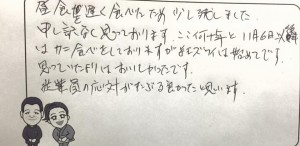 昼食を遅く食べたため少し残しました
申し訳なく思っております。ここ何年と11月6日以降
はカニ食べをしておりますがズワイは始めてです。
思っていたよりはおいしかったです。
従業員の応対がたいぶ良かった思います。